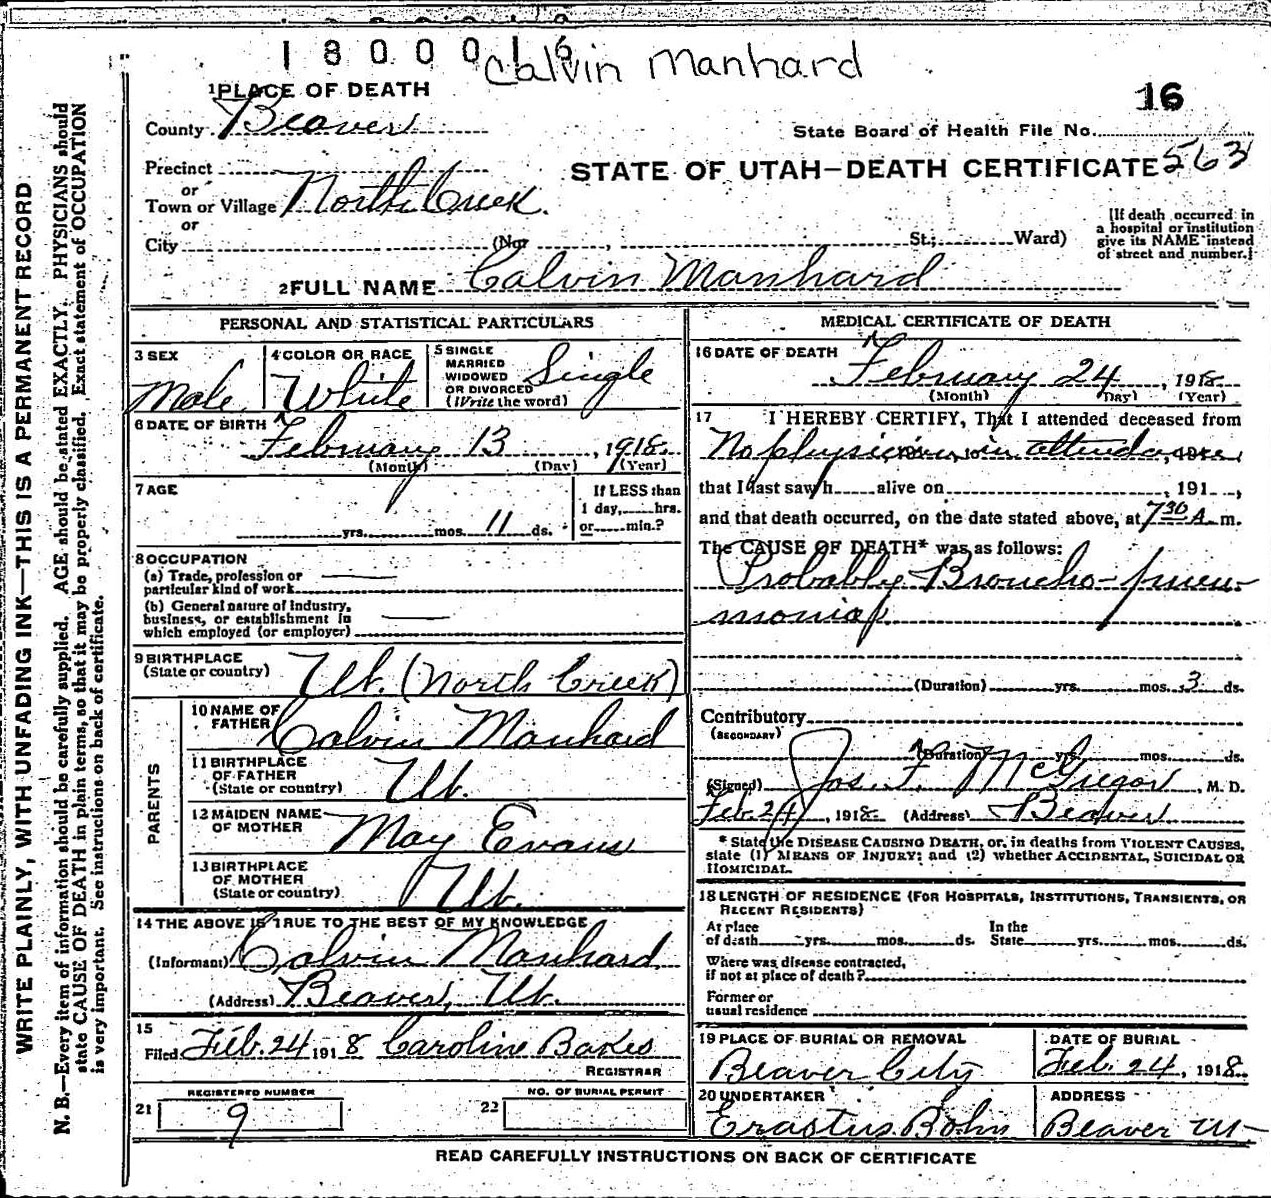 1800016
Calvin Manhard
16
1 PLACE OF DEATH
County Beaver
State Board of Health File No.
Precinct
or
Town or Village North Creek.
or
City (No , St.; Ward)
STATE OF UTAH—DEATH CERTIFICATE 563
[If death occurred in
a hospital or institution
give its NAME instead
of street and number.]
2 FULL NAME Calvin Manhard
PERSONAL AND STATISTICAL PARTICULARS
3 SEX
Male
4 COLOR OR RACE
White
5 SINGLE
MARRIED
WIDOWED
OR DIVORCED
(Write the word)
Single
6 DATE OF BIRTH
February 13, 1918
(Month) (Day) (Year)
7 AGE
yrs. mos. 11 ds.
If LESS than
1 day, hrs.
or min.?
8 OCCUPATION
(a) Trade, profession or
particular kind of work
(b) General nature of industry,
business, or establishment in
which employed (or employer)
9 BIRTHPLACE
(State or country)
Ut. (North Creek)
PARENTS
10 NAME OF
FATHER
Calvin Manhard
11 BIRTHPLACE
OF FATHER
(State or country)
Ut.
12 MAIDEN NAME
OF MOTHER
May Evans
13 BIRTHPLACE
OF MOTHER
(State or country)
Ut.
14 THE ABOVE IS TRUE TO THE BEST OF MY KNOWLEDGE
(Informant) Calvin Manhard
(Address) Beaver, Ut.
15
Filed Feb. 24 1918 Caroline Bakes
REGISTRAR
REGISTERED NUMBER
21 9
NO. OF BURIAL PERMIT
22
MEDICAL CERTIFICATE OF DEATH
16 DATE OF DEATH
February 24, 1918
(Month) (Day) (Year)
17 I HEREBY CERTIFY, That I attended deceased from
No physician in attendance
that I last saw h alive on , 191 ,
and that death occurred, on the date stated above, at 7 30 A. m.
The CAUSE OF DEATH* was as follows:
Probably Broncho-pneu-
monia
(Duration) yrs. mos. 3 ds.
Contributory
(SECONDARY)
(Duration) yrs. mos. ds.
(Signed) Jos. F. McGregor, M. D.
Feb. 24, 1918 (Address) Beaver
* State the DISEASE CAUSING DEATH, or, in deaths from VIOLENT CAUSES,
state (1) MEANS OF INJURY; and (2) whether ACCIDENTAL, SUICIDAL OR
HOMICIDAL.
18 LENGTH OF RESIDENCE (FOR HOSPITALS, INSTITUTIONS, TRANSIENTS, OR
RECENT RESIDENTS)
At place
of death yrs. mos. ds.
In the
State yrs. mos. ds.
Where was disease contracted,
if not at place of death?
Former or
usual residence
19 PLACE OF BURIAL OR REMOVAL
Beaver City
DATE OF BURIAL
Feb. 24, 1918
20 UNDERTAKER
Erastus Bohn
ADDRESS
Beaver Ut
READ CAREFULLY INSTRUCTIONS ON BACK OF CERTIFICATE
WRITE PLAINLY, WITH UNFADING INK—THIS IS A PERMANENT RECORD
N. B.—Every item of information should be carefully supplied. AGE should be stated EXACTLY. PHYSICIANS should
state CAUSE OF DEATH in plain terms, so that it may be properly classified. Exact statement of OCCUPATION
is very important. See instructions on back of certificate.